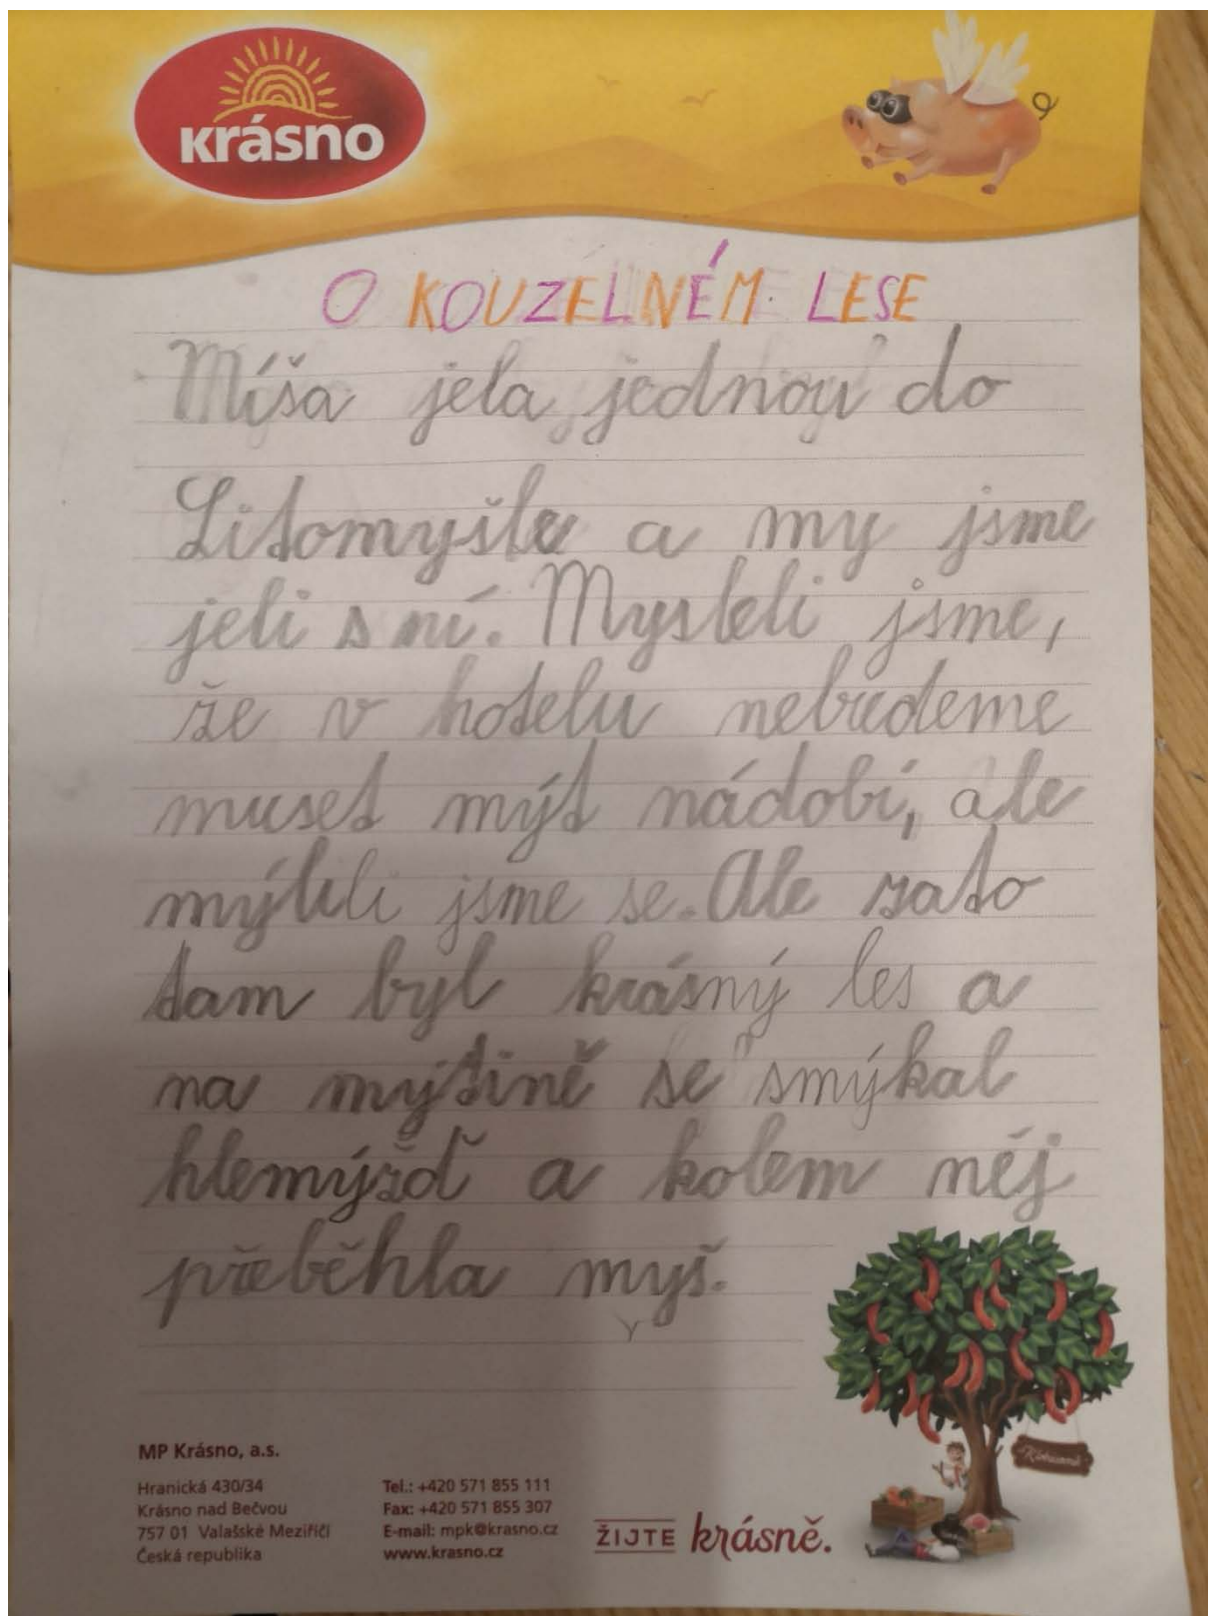 krásno
O KOUZELNÉM LESE
Míša jela jednou do
Litomyšle a my jsme
jeli s ní. Mysleli jsme,
že v hotelu nebudeme
muset mýt nádobí, ale
mýlili jsme se. Ale zato
tam byl krásný les a
na mýtině se smýkal
hlemýžď a kolem něj
přeběhla myš.
MP Krásno, a.s.
Hranická 430/34
Krásno nad Bečvou
757 01 Valašské Meziříčí
Česká republika
Tel.: +420 571 855 111
Fax: +420 571 855 307
E-mail: mpk@krasno.cz
www.krasno.cz
ŽIJTE krásně.